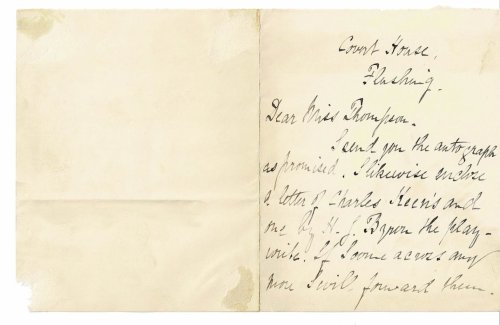 Court House,
Flushing.
Dear Miss Thompson.
I send you the autograph
as promised. I likewise enclose
a letter of Charles Keen's and
one by H. J. Byron the play-
write. If I come across any
more I will forward them.